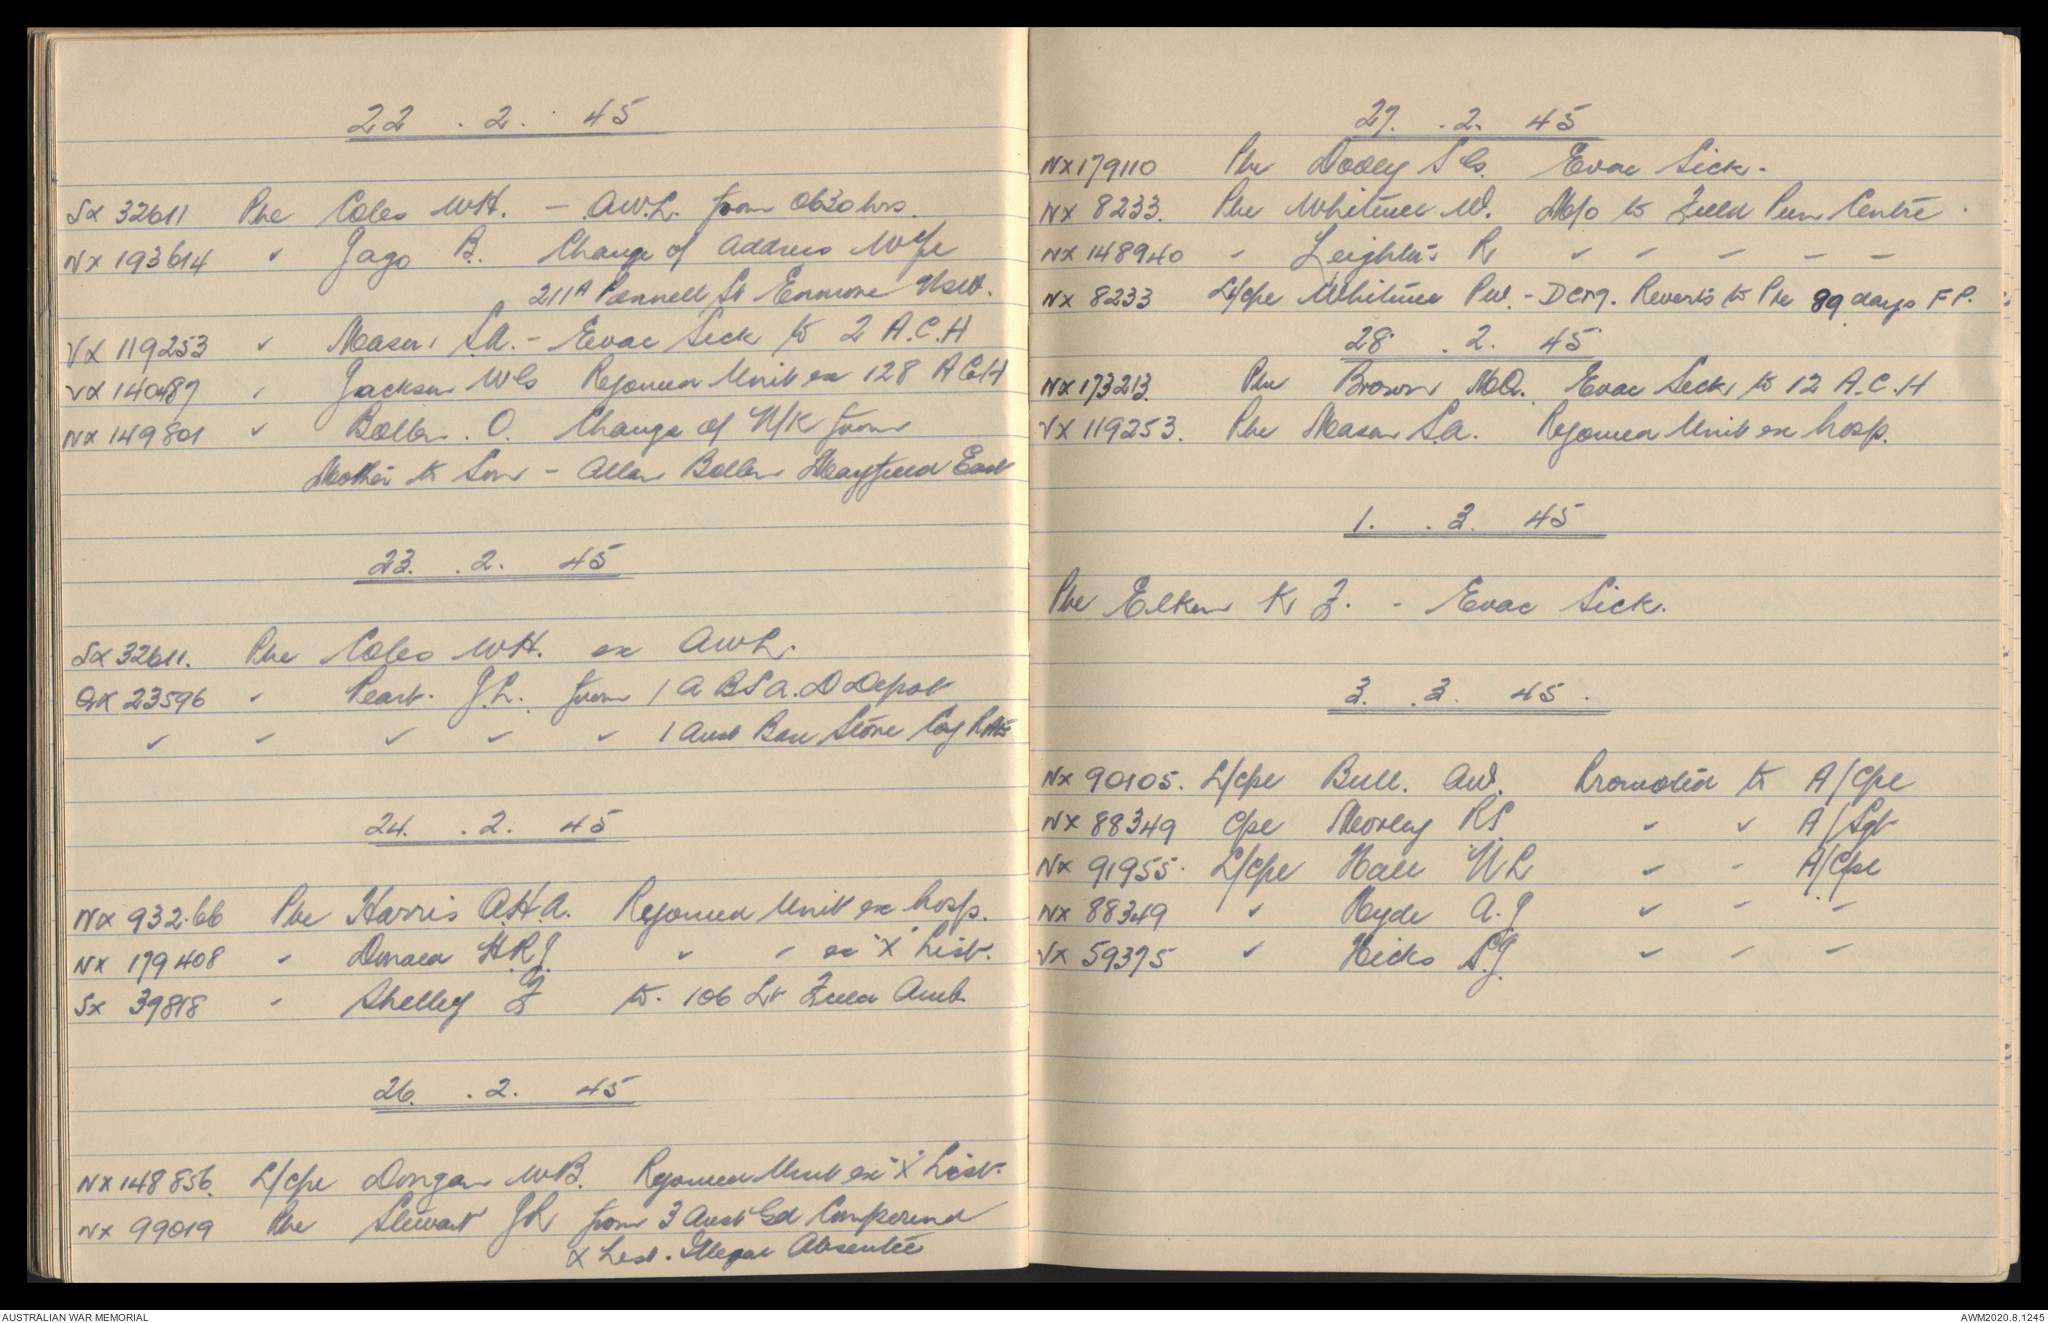 22 . 2 . 45
SX 32611 Pte Coles W.H. - A.W.L. from 0630 hrs.
NX 193614 " Jago B. Change of Address Wife
211A Pannell St Enmore NSW.
VX 119253 " Mason S.A. - Evac Sick to 2 A.C.H
VX 140487 " Jackson W G Rejoined Unit ex 128 A G H
NX 149801 " Bollen . O. Change of N/K from
Mother to Son - Allan Bollen Mayfield East
23. . 2. 45
SX 32611. Pte Coles W.H. ex AWL.
QX 23596 " Peart. J.L. from 1 A B S A. D Depot
" " " " " 1 Aust Base Store Coy
24. . 2. 45
NX 93266 Pte Harris A.H.A. Rejoined Unit ex hosp.
NX 179408 " Donald H.R.J. " " ex "X" List.
SX 39818 " Shelley F to. 106 Lt Field Amb.
26. . 2. 45
NX 148856. L/Cpl Dongan W.B. Rejoined Unit ex "X" List.
NX 99019 Pte Stewart J L from 3 Aust Gd Compound
X List. Illegal Absentee
27. . 2. 45
NX 179110 Pte Dooley S G. Evac Sick.
NX 8233. Pte Whitmee W. M/o to Field Pun Centre.
NX 148940 " Leighton R " " " " "
NX 8233 L/Cpl Whitmee P.W. - DCM. Reverts to Pte 89 days F P.
28 . 2. 45
NX 173213. Pte Brown Evac Sick to 12 A.C.H
VX 119253. Pte Mason S.A. Rejoined Unit ex hosp.
1. . 3. 45
Pte Elken K F. - Evac Sick.
3. . 3. 45.
NX 90105. L/Cpl Bull. A.W. Promoted to A/Cpl
NX 88349 Cpl Morley R S. " " A/Sgt
NX 91955. L/Cpl Hall N L " " A/Cpl
NX 88349 " Hyde A.J " " "
VX 59375 " Hicks S.J. " " "
AUSTRALIAN WAR MEMORIAL
AWM2020.8.1245